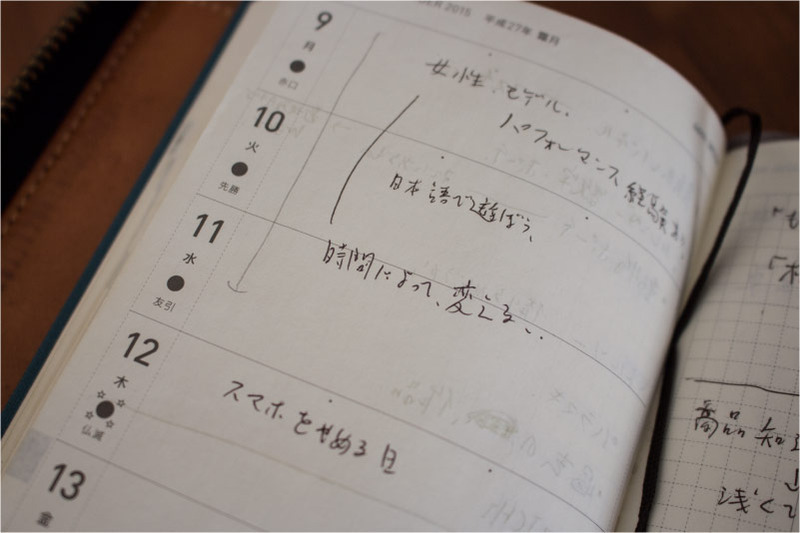 BER 2015 平成27年 霜月
9
月
赤口
女性モデル、
パフォーマンス経験
10
火
先勝
日本語で遊ぼう、
11
水
友引
時間によって、変える、、
12
木
仏滅
スマホをやめる日
13
金
商品知
浅くて